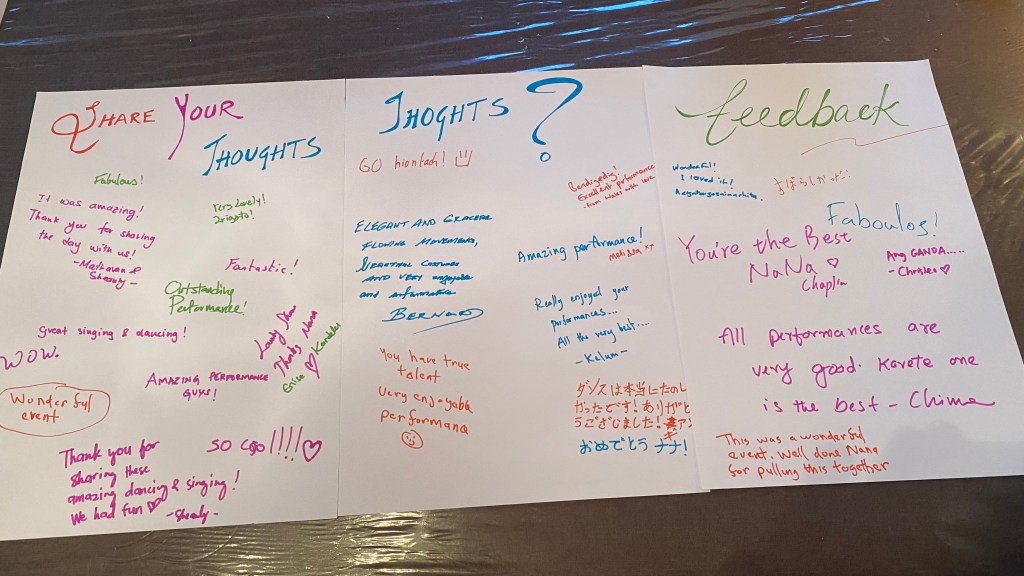 SHARE YOUR
THOUGHTS
Fabulous!
It was amazing!
Thank you for sharing
the day with us!
- Mathavan &
Shealy -
Very Lovely!
Fantastic!
Outstanding
Performance!
Great singing & dancing!
WOW.
Lovely Show
Thanks Nana
Erika ♡
AMAZING PERFORMANCE
GUYS!
Wonderful
event
Thank you for
sharing these
amazing dancing & singing!
We had fun ♡
- Shealy -
SO Cool!!!!♡
THOGHTS ?
GO hiontach!
Bendigedig!
Excellent performance
from Wales with love
ELEGANT AND GRACEFUL
FLOWING MOVEMENT,
BEAUTIFUL COSTUMES
AND VERY enjoyable
and informative
BERNARD
Amazing performance!
Really enjoyed your
performances....
All the very best....
- Kelum -
You have true
talent
Very enjoyable
performance
ダンスは本当にたのし
かったです!ありがと
うございました!
おめでとう ナナ!
feedback
Wonderful!
I loved it!
すばらしかった
Faboulos!
You're the Best
NaNa ♡
Chaplin
Ang GANDA.....
All performances are
very good. Karote one
is the best - Chima
This was a wonderful
event. Well done Nana
for pulling this together